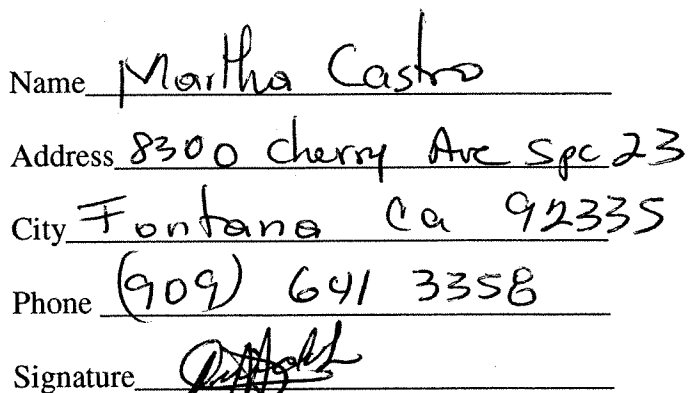 Name Martha Castro
Address 8300 Cherry Ave Spc 23
City Fontana Ca 92335
Phone (909) 641 3358
Signature